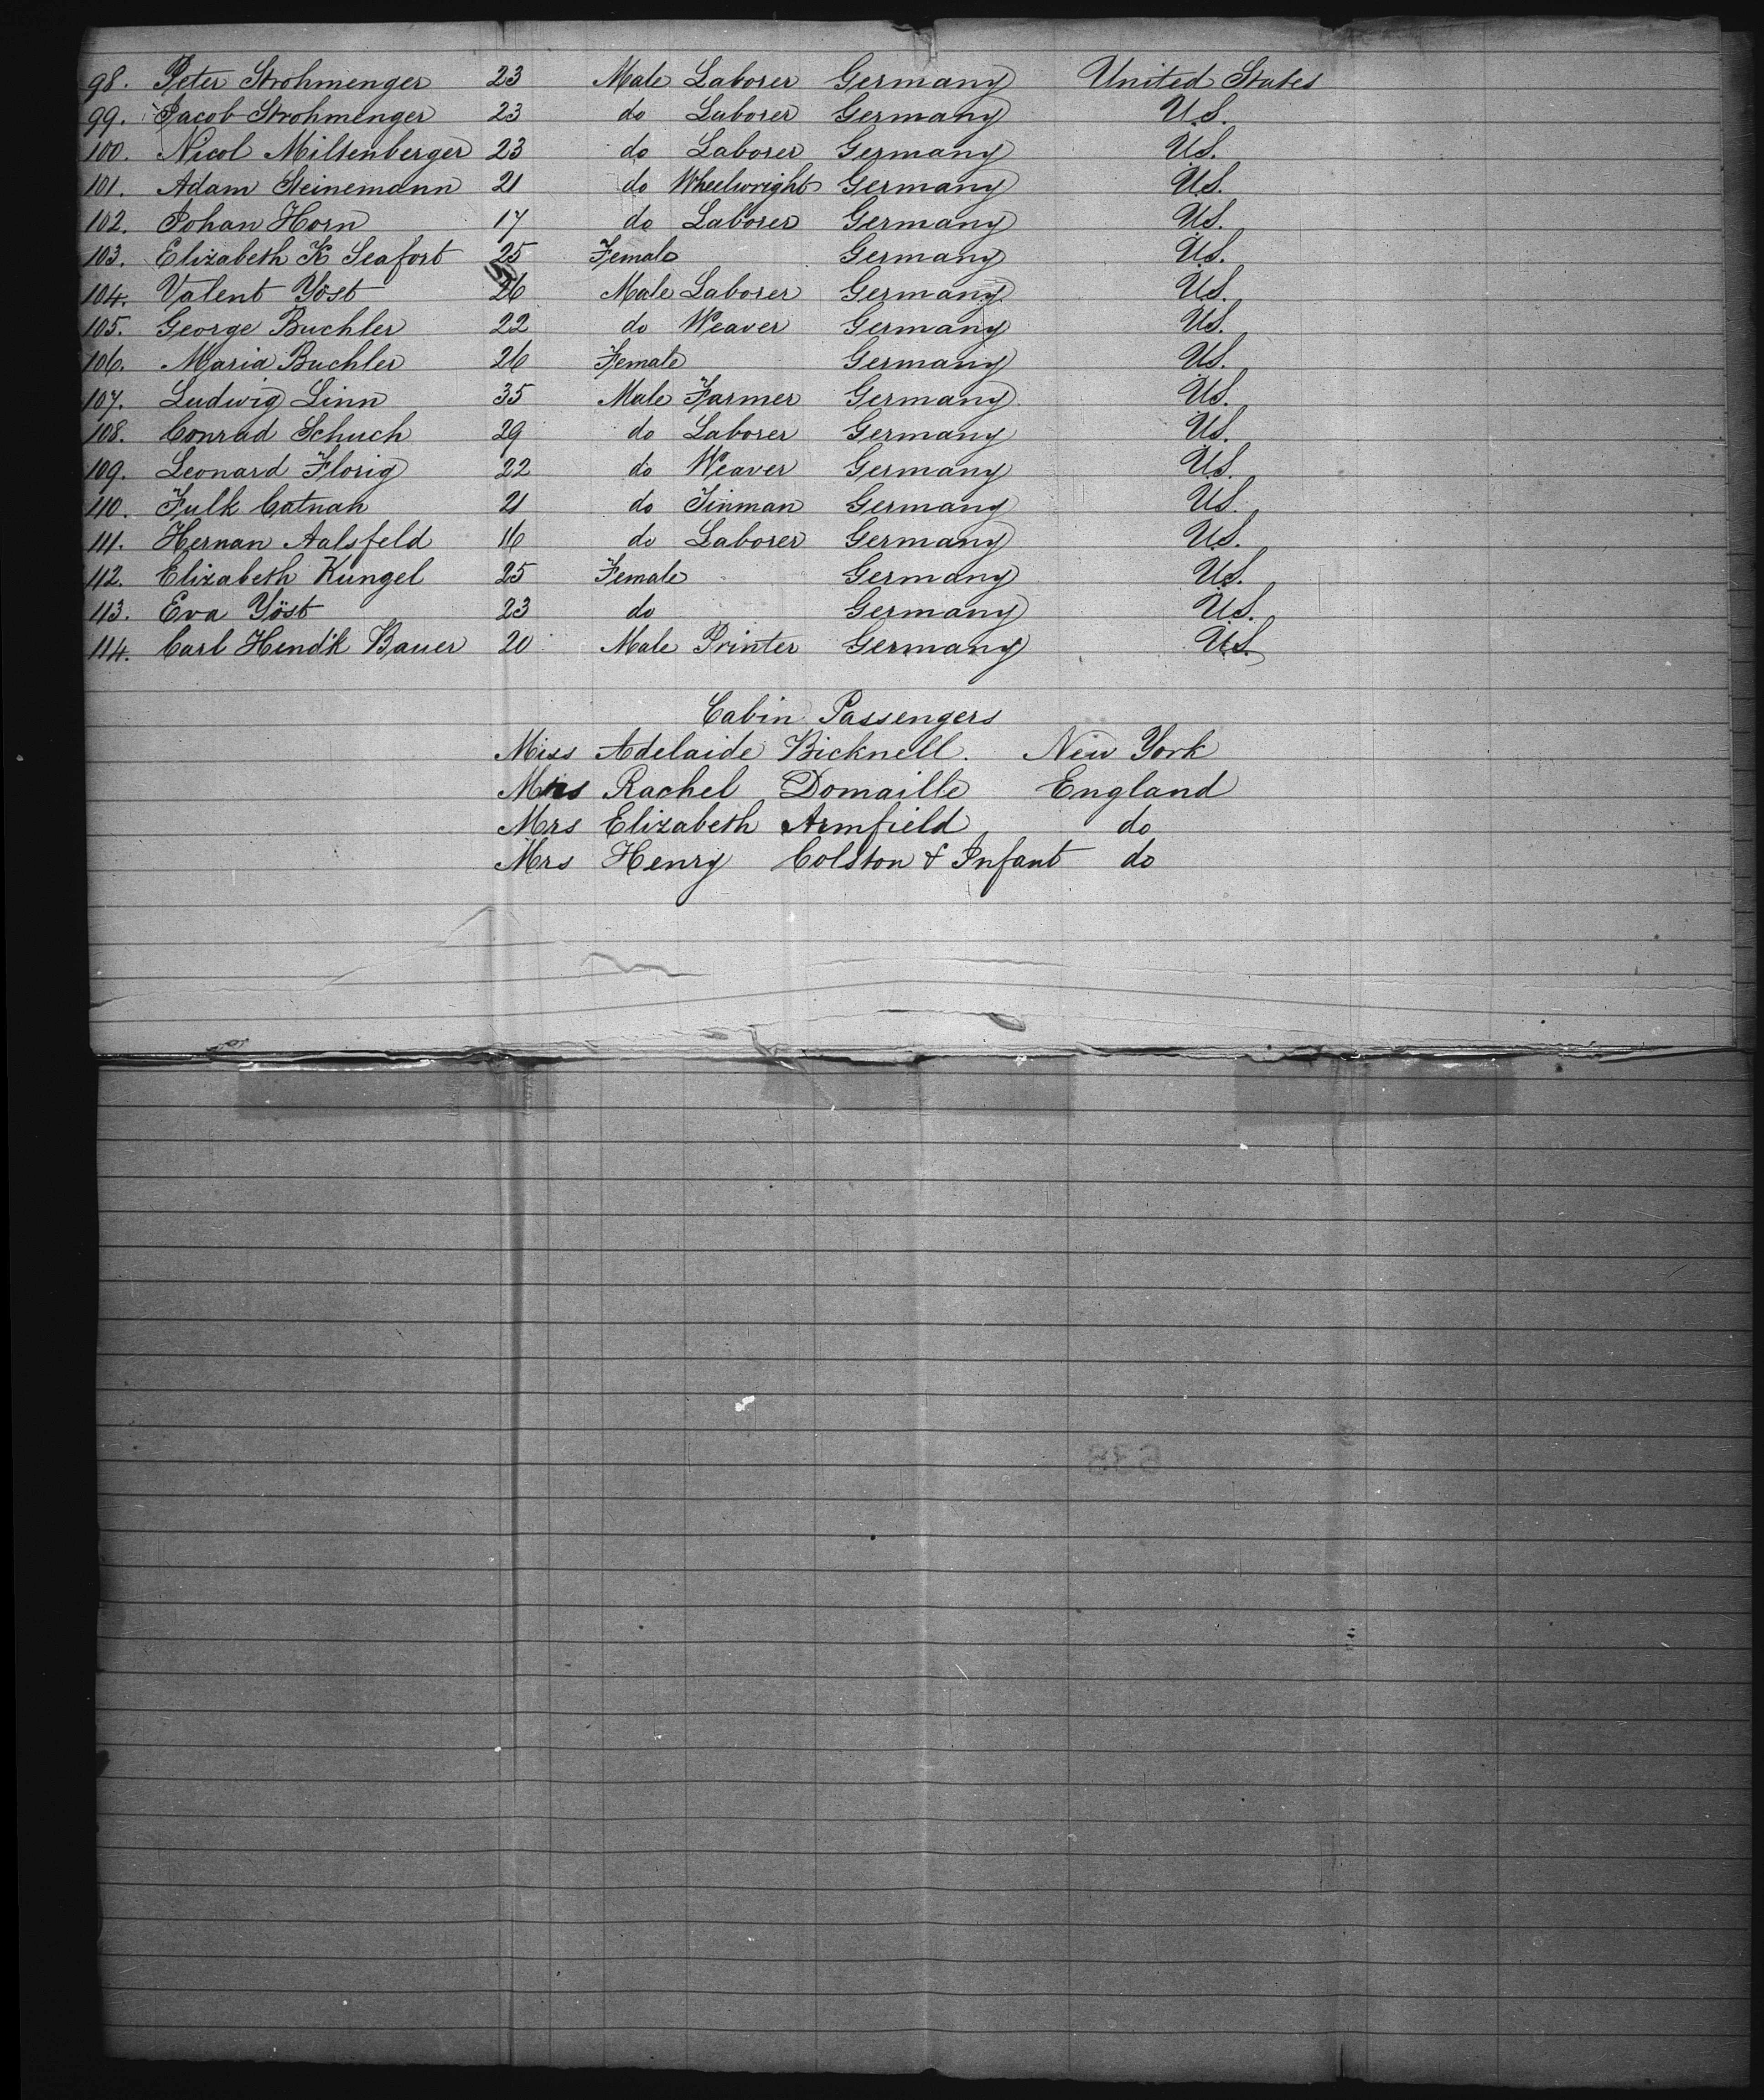 98. Peter Strohmenger 23 Male Laborer Germany United States
99. Jacob Strohmenger 23 do Laborer Germany U.S.
100. Nicol Miltenberger 23 do Laborer Germany U.S.
101. Adam Steinemann 21 do Wheelwright Germany U.S.
102. Johan Horn 17 do Laborer Germany U.S.
103. Elizabeth K Seafort 25 Female Germany U.S.
104. Valent Yöst 26 Male Laborer Germany U.S.
105. George Buchler 22 do Weaver Germany U.S.
106. Maria Buchler 26 Female Germany U.S.
107. Ludwig Linn 35 Male Farmer Germany U.S.
108. Conrad Schuch 29 do Laborer Germany U.S.
109. Leonard Florig 22 do Weaver Germany U.S.
110. Fulk Catnah 21 do Tinman Germany U.S.
111. Hernan Aalsfeld 16 do Laborer Germany U.S.
112. Elizabeth Kungel 25 Female Germany U.S.
113. Eva Yöst 23 do Germany U.S.
114. Carl Hendk Bauer 20 Male Printer Germany U.S.
Cabin Passengers
Miss Adelaide Bicknell. New York
Mrs Rachel Domaille England
Mrs Elizabeth Armfield do
Mrs Henry Colston & Infant do